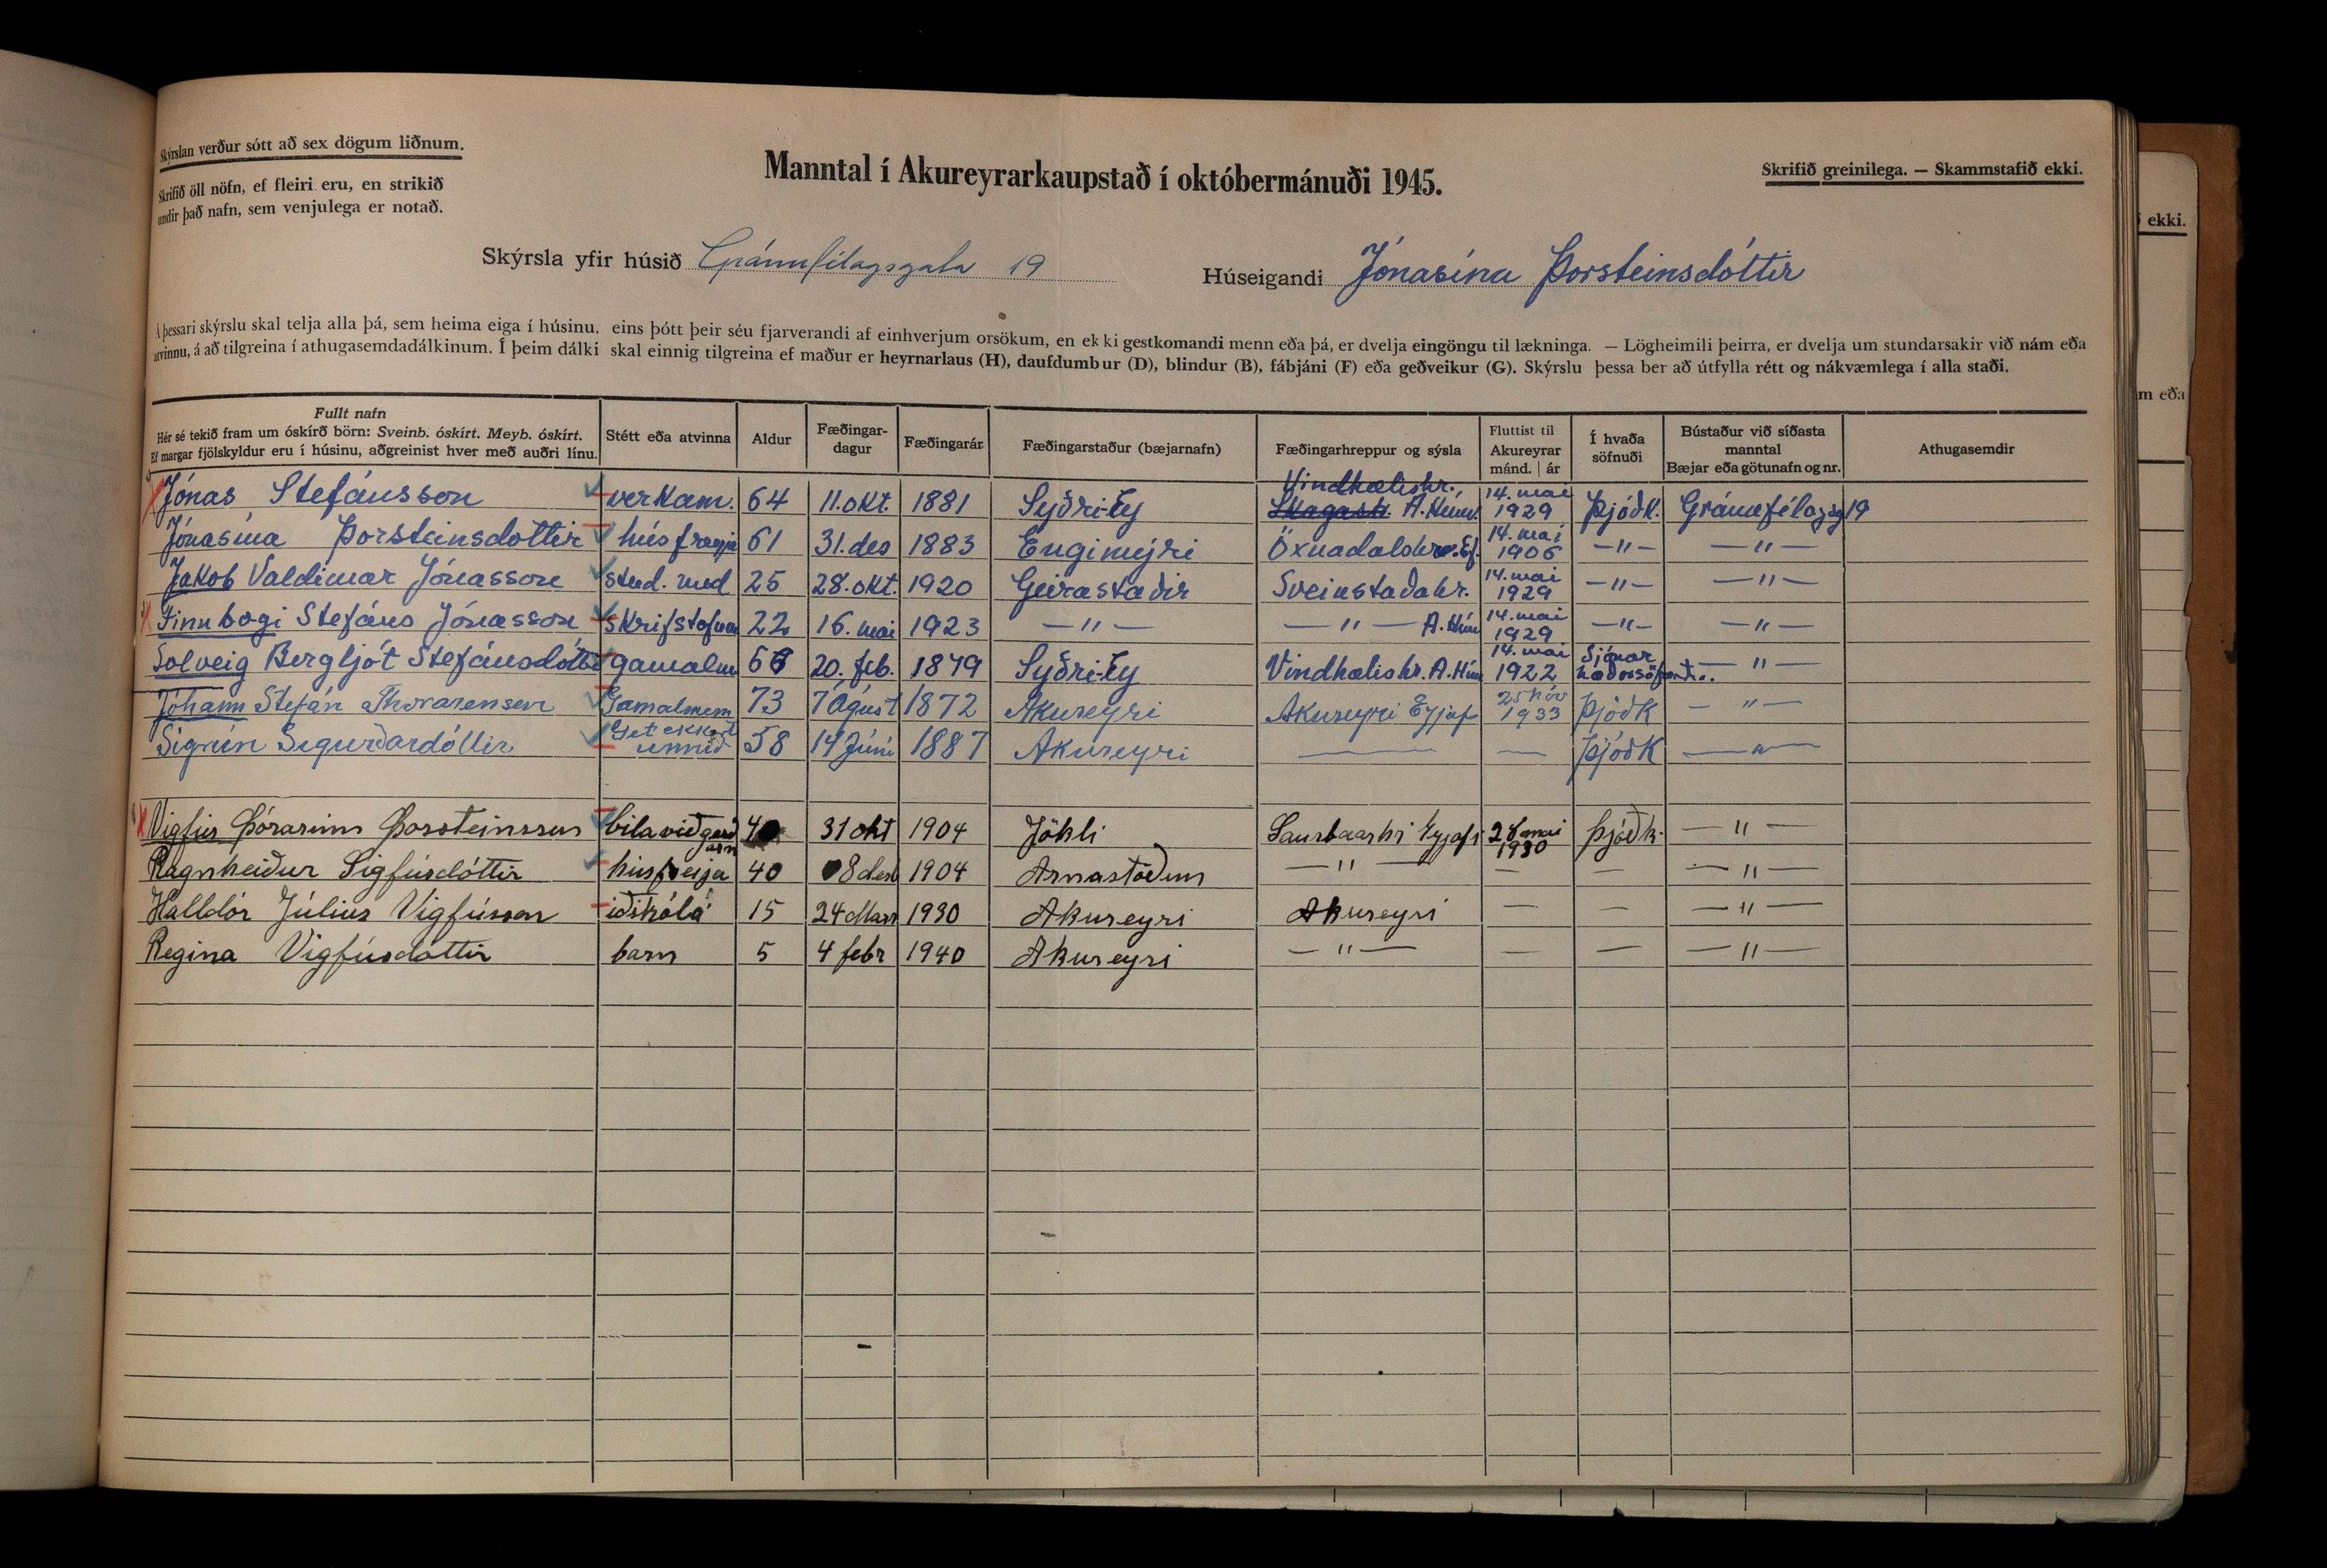 Skýrslan verður sótt að sex dögum liðnum.
Skrifið öll nöfn, ef fleiri eru, en strikið
undir það nafn, sem venjulega er notað.
Manntal í Akureyrarkaupstað í októbermánuði 1945.
Skrifið greinilega. — Skammstafið ekki.
Skýrsla yfir húsið Gránufélagsgata 19
Húseigandi Jónasína Þorsteinsdóttir
Á þessari skýrslu skal telja alla þá, sem heima eiga í húsinu, eins þótt þeir séu fjarverandi af einhverjum orsökum, en ekki gestkomandi menn eða þá, er dvelja eingöngu til lækninga. — Lögheimili þeirra, er dvelja um stundarsakir við nám eða
atvinnu, á að tilgreina í athugasemdadálkinum. Í þeim dálki skal einnig tilgreina ef maður er heyrnarlaus (H), daufdumbur (D), blindur (B), fábjáni (F) eða geðveikur (G). Skýrslu þessa ber að útfylla rétt og nákvæmlega í alla staði.
Fullt nafn
Hér sé tekið fram um óskírð börn: Sveinb. óskírt. Meyb. óskírt.
Ef margar fjölskyldur eru í húsinu, aðgreinist hver með auðri línu.
Stétt eða atvinna
Aldur
Fæðingar-
dagur
Fæðingarár
Fæðingarstaður (bæjarnafn)
Fæðingarhreppur og sýsla
Fluttist til
Akureyrar
mánd. | ár
Í hvaða
söfnuði
Bústaður við síðasta
manntal
Bæjar eða götunafn og nr.
Athugasemdir
Jónas Stefánsson verkam. 64 11. okt. 1881 Syðri-Ey Vindhælishr. Skagastr. A.Húnv. 14. mai 1929 Þjóðk. Gránufélagsg 19
Jónasína Þorsteinsdottir húsfreyja 61 31. des 1883 Engimýri Öxnadalshr. Ef. 14. mai 1906 —"— —"—
Jakob Valdimar Jónasson stud. med 25 28. okt. 1920 Geirastaðir Sveinstaðahr. 14. mai 1929 —"— —"—
Finnbogi Stefáns Jónasson skrifstofum 22 16. mai 1923 —"— —"— A. Hún 14. mai 1929 —"— —"—
Solveig Bergljót Stefánsdóttir gamalm 66 20. feb. 1879 Syðri-Ey Vindhælishr. A. Hún 14. mai 1922 Sjónarhæðarsöfnuð.. —"—
Jóhann Stefán Thorarensen Gamalmenn 73 7 Ágúst 1872 Akureyri Akureyri Eyjaf 25 Nóv 1933 Þjóðk —"—
Sigrún Sigurðardóttir Get ekkert unnið 58 14 Júní 1887 Akureyri — — Þjóðk —"—
Vigfús Þórarinn Þorsteinsson bilaviðgerðarm 40 31 okt 1904 Jökli Saurbæarhr Eyjafi 28 mai 1930 Þjóðk. —"—
Ragnheiður Sigfúsdóttir húsfreija 40 8 des 1904 Arnastöðum —"— — — —"—
Halldór Júlíus Vigfússon iðskóla 15 24 Mars 1930 Akureyri Akureyri — — —"—
Regina Vigfúsdóttir barn 5 4 febr 1940 Akureyri —"— — — —"—
ekki.
m eða